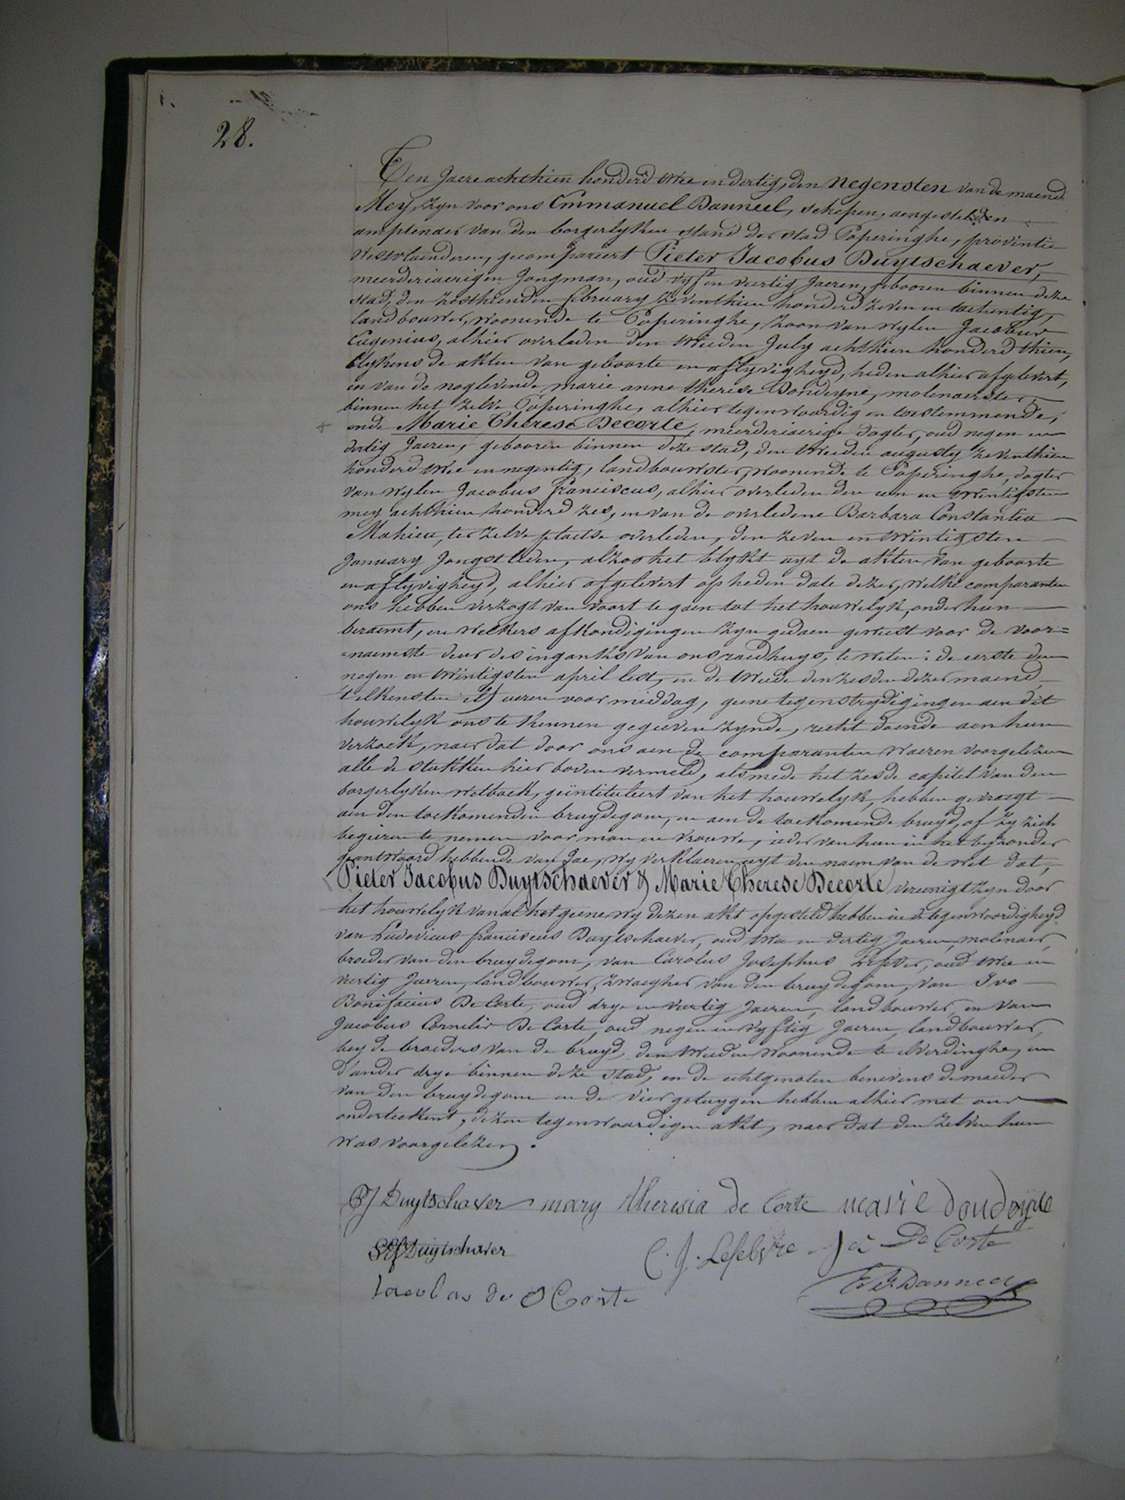 28.
Ten Jaere achthien honderd twee en dertig, den negensten van de maend
Mey, zyn voor ons Emmanuel Danneel, schepen, aengestelden
amptenaer van den borgerlyken stand der stad Poperinghe, provintie
Westvlaenderen, gecompareert Pieter Jacobus Duytschaever,
meerderjaerigen Jongman, oud vyf en veertig Jaeren, gebooren binnen deze
stad, den zesthienden february zeventhien honderd zeven en tachentig,
landbouwer, woonende te Poperinghe, zoon van wylen Jacobus
Eugenius, alhier overleden den tweeden July achthien honderd thien,
blykens de akten van geboorte en aflyvigheyd, heden alhier afgelevert,
en van de noglevende marie anne therese Dondeyne, molenaerster
binnen het zelve Poperinghe, alhier tegenwoordig en toestemmende;
ende Marie Therese Decorte, meerderjaerige dogter, oud negen en
dertig Jaeren, gebooren binnen deze stad, den tweeden augusty zeventhien
honderd twee en negentig, landbouwster, woonende te Poperinghe, dogter
van wylen Jacobus franciscus, alhier overleden den een en twintigsten
mey achthien honderd zes, en van de overledene Barbara Constantia
Mahieu, ter zelve plaetse overleden, den zeven en twintigsten
January Jongstleden, alzoo het blykt uyt de akten van geboorte
en aflyvigheyd, alhier afgelevert op heden date dezer, welke comparanten
ons hebben verzogt van voort te gaen tot het houwelyk, onder hun
beraemt, en welkers afkondigingen zyn gedaen geweest voor de voor=
naemste deur des ingankx van ons raedhuys, te weten: de eerste den
negen en twintigsten april lest, en de tweede den zesden dezer maend
telkensten elf ueren voor middag, geene tegenstrydigingen aen dit
houwelyk ons te kennen gegeven zynde, recht doende aen hun
verzoek, naer dat door ons aen de comparanten waeren voorgelezen
alle de stukken hier boven vermeld, alsmede het zesde capitel van den
borgerlyken wetboek, geintituleert van het houwelyk, hebben gevraegt
aen den toekomenden bruydegom, en aen de toekomende bruyd, of zy zich
begeeren te nemen voor man en vrouwe, ieder van hun in het byzonder
geantwoord hebbende van Jae, wy verklaeren uyt den naem van de wet dat,
Pieter Jacobus Duytschaever & Marie Therese Decorte vereenigt zyn door
het houwelyk van al het geene wy dezen akt opgesteld hebben in de tegenwoordigheyd
van Ludovicus franciscus Duytschaever, oud twee en dertig Jaeren, molenaer,
broeder van den bruydegom, van Carolus Josephus Lefever, oud twee en
veertig Jaeren, landbouwer, zwaegher van den bruydegom, van Ivo
Bonifacius De Corte, oud drye en veertig Jaeren, landbouwer, en van
Jacobus Cornelis De Corte, oud negen en vyftig Jaeren, landbouwer,
beyde broeders van de bruyd, den tweeden woonende te Elverdinghe, en
d'ander drye binnen deze stad, en de echtgenoten benevens de moeder
van den bruydegom en de vier getuygen hebben alhier met ons
onderteekent, dezen tegenwoordigen akt, naer dat den zelven hun
was voorgelezen.
PJ Duytschaver mary theresia de Corte marie dondeyne
LF Duytschaver C. J. Lefebvre De Corte
Jacobus de Corte E Danneel